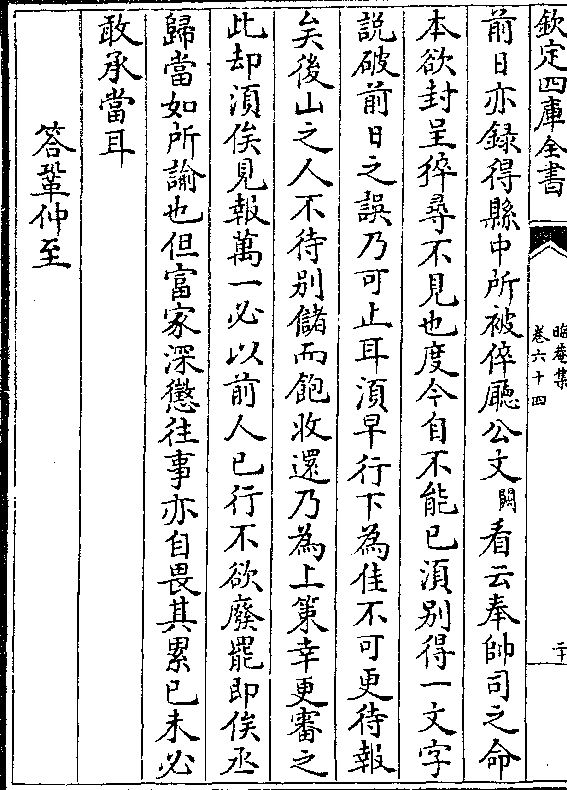 欽定四庫全書
晦菴集
卷六十四
二十
前日亦録得縣中所被倅廳公文闕看云奉帥司之命
本欲封呈猝尋不見也度今自不能已湏别得一文字
説破前日之誤乃可止耳湏早行下為佳不可更待報
矣後山之人不待别儲而飽收還乃為上策幸更審之
此却湏俟見報萬一必以前人已行不欲廢罷即俟丞
歸當如所諭也但富家深懲往事亦自畏其累已未必
敢承當耳
答鞏仲至